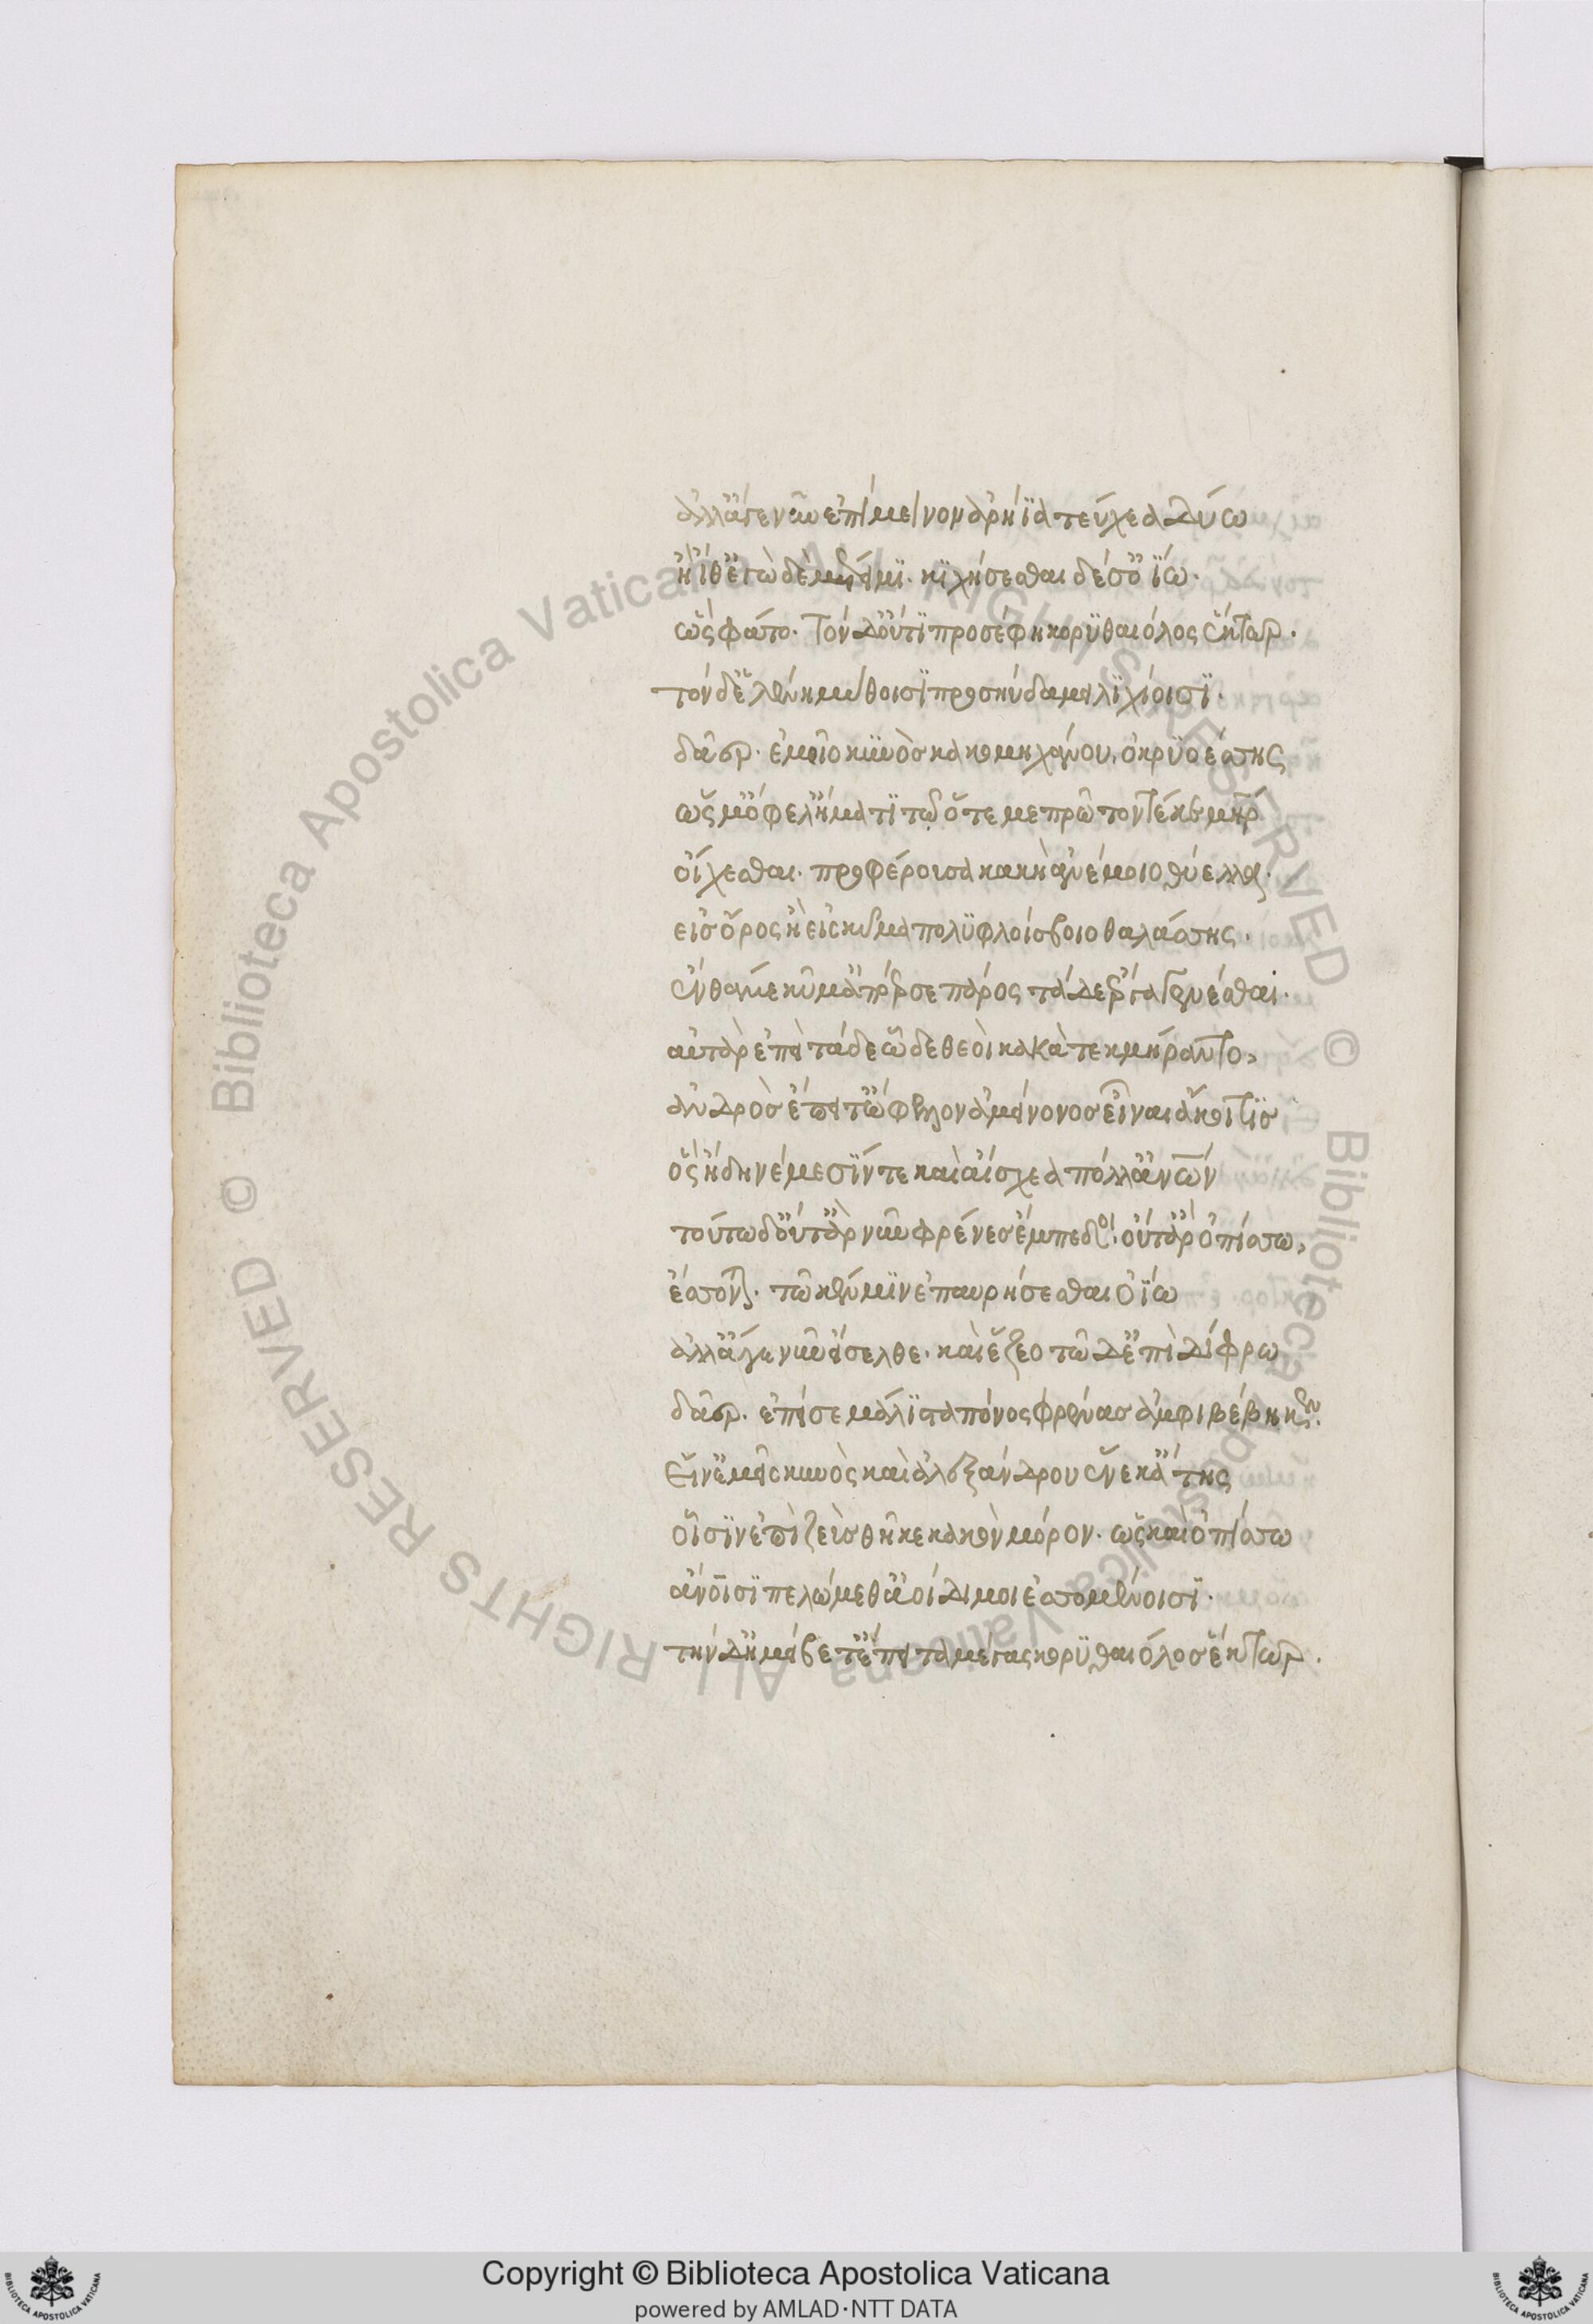 ἀλλ' ἄγε νῦν ἐπίμεινον ἀρήϊα τεύχεα δύω
ἢ ἴθ' ἐγὼ δὲ μέτειμϊ. κϊχήσεσθαι δέ σ' ὀΐω.
ὣς φάτο. τὸν δ' οὔτϊ προσέφη κορϋθαιόλος ἕκτωρ.
τὸν δ' ἑλένη μύθοισϊ προσηύδα μειλϊχίοισϊ.
δᾶερ. ἐμεῖο κϋνὸς κακομηχάνου, ὀκρϋοέσσης
ὥς μ' ὄφελ' ἤματϊ τῷ ὅτε με πρῶτον τέκε μήτηρ
οἴχεσθαι. προφέρουσα κακὴ ἀνέμοιο θύελλα.
εἰς ὄρος ἢ εἰς κῦμα πολϋφλοίσβοιο θαλάσσης.
ἔνθά με κῦμ' ἀπόερσε πάρος τάδε ἔργα γενέσθαι.
αὐτὰρ ἐπεὶ τάδε ὧδε θεοὶ κακὰ τεκμήραντο,
ἀνδρὸς ἔπειτ' ὤφελλον ἀμείνονος εἶναι ἄκοιτϊς
ὃς ἤδη νέμεσϊν τε καὶ αἴσχεα πόλλ' ἀνθρώπων
τούτω δ' οὔτ' ἂρ νῦν φρένες ἔμπεδοι. οὔτ' ἂρ ὀπίσσω,
ἔσσονται. τῶ κέν μϊν ἐπαυρήσεσθαι ὀΐω
ἀλλ' ἄγε νῦν εἴσελθε. καὶ ἕζεο τῶδ' ἐπὶ δίφρω
δᾶερ. ἐπεί σε μάλϊστα πόνος φρένας ἀμφιβέβηκεν.
εἵνεκ' ἐμεῖο κυνὸς καὶ ἀλεξάνδρου ἕνεκ' ἄτης
οἷσϊν ἐπὶ ζεὺς θῆκε κακὸν μόρον. ὡς καὶ ὀπίσσω
ἀνθρώποισϊ πελώμεθ' ἀοίδιμοι ἐσσομένοισϊ.
τὴν δ' ἠμείβετ' ἔπειτα μέγας κορϋθαιόλος ἕκτωρ.
© Biblioteca Apostolica Vaticana ALL RIGHTS RESERVED
Copyright © Biblioteca Apostolica Vaticana
powered by AMLAD·NTT DATA